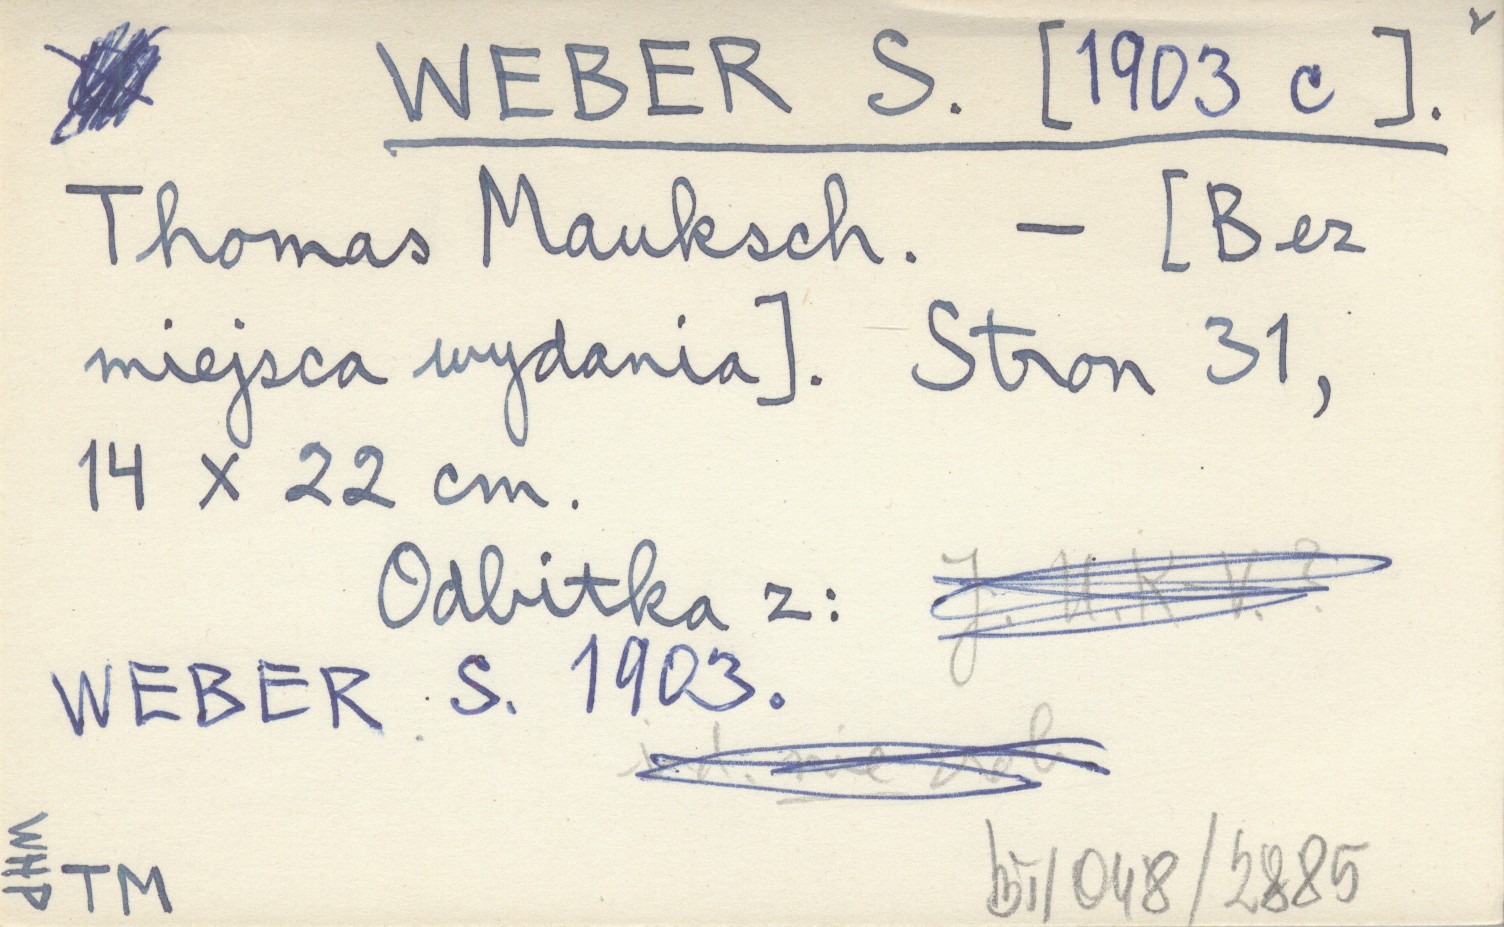 WEBER S. [1903 c].
Thomas Mauksch. – [Bez
miejsca wydania]. Stron 31,
14 x 22 cm.
Odbitka z:
WEBER S. 1903.
WHP
TM
bi/048/2885